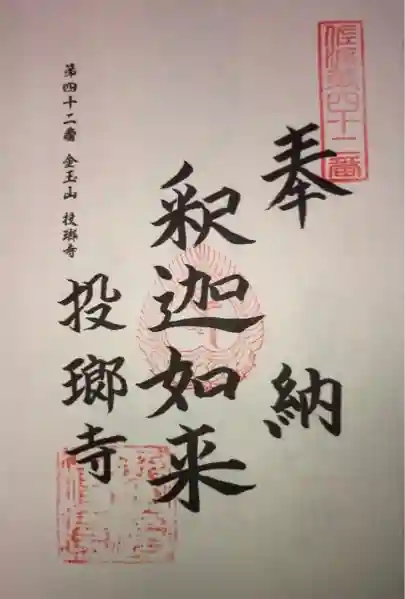 佐渡第四十二番
奉納
釈迦如来
第四十二番 金玉山 投瑯寺
投瑯寺